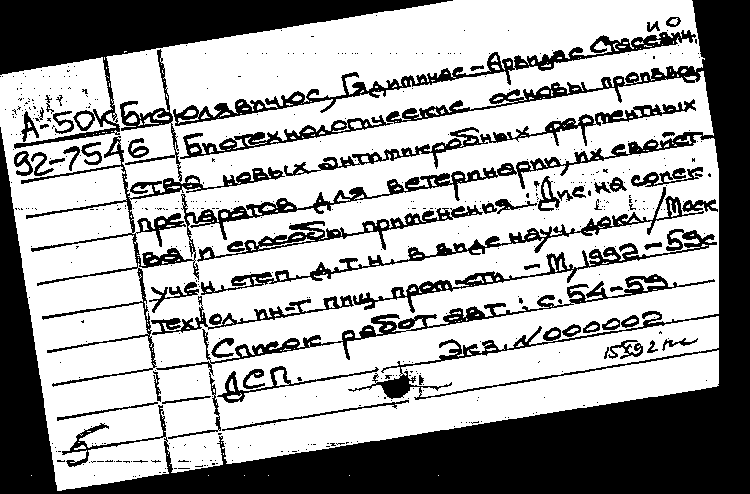 ИО
А-50К Бизюлявичюс, Гядиминас-Арвидас Стасевич.
92-7546 Биотехнологические основы производ-
ства новых антимикробных ферментных
препаратов для ветеринарии, их свойст-
ва и способы применения : Дис. на соиск.
учен. степ. д.т.н. в виде науч. докл. / Моск
технол. ин-т пищ. пром-сти. - М., 1992. - 59с
Список работ авт. : с. 54-59.
ДСП. Экз. N 000002
5